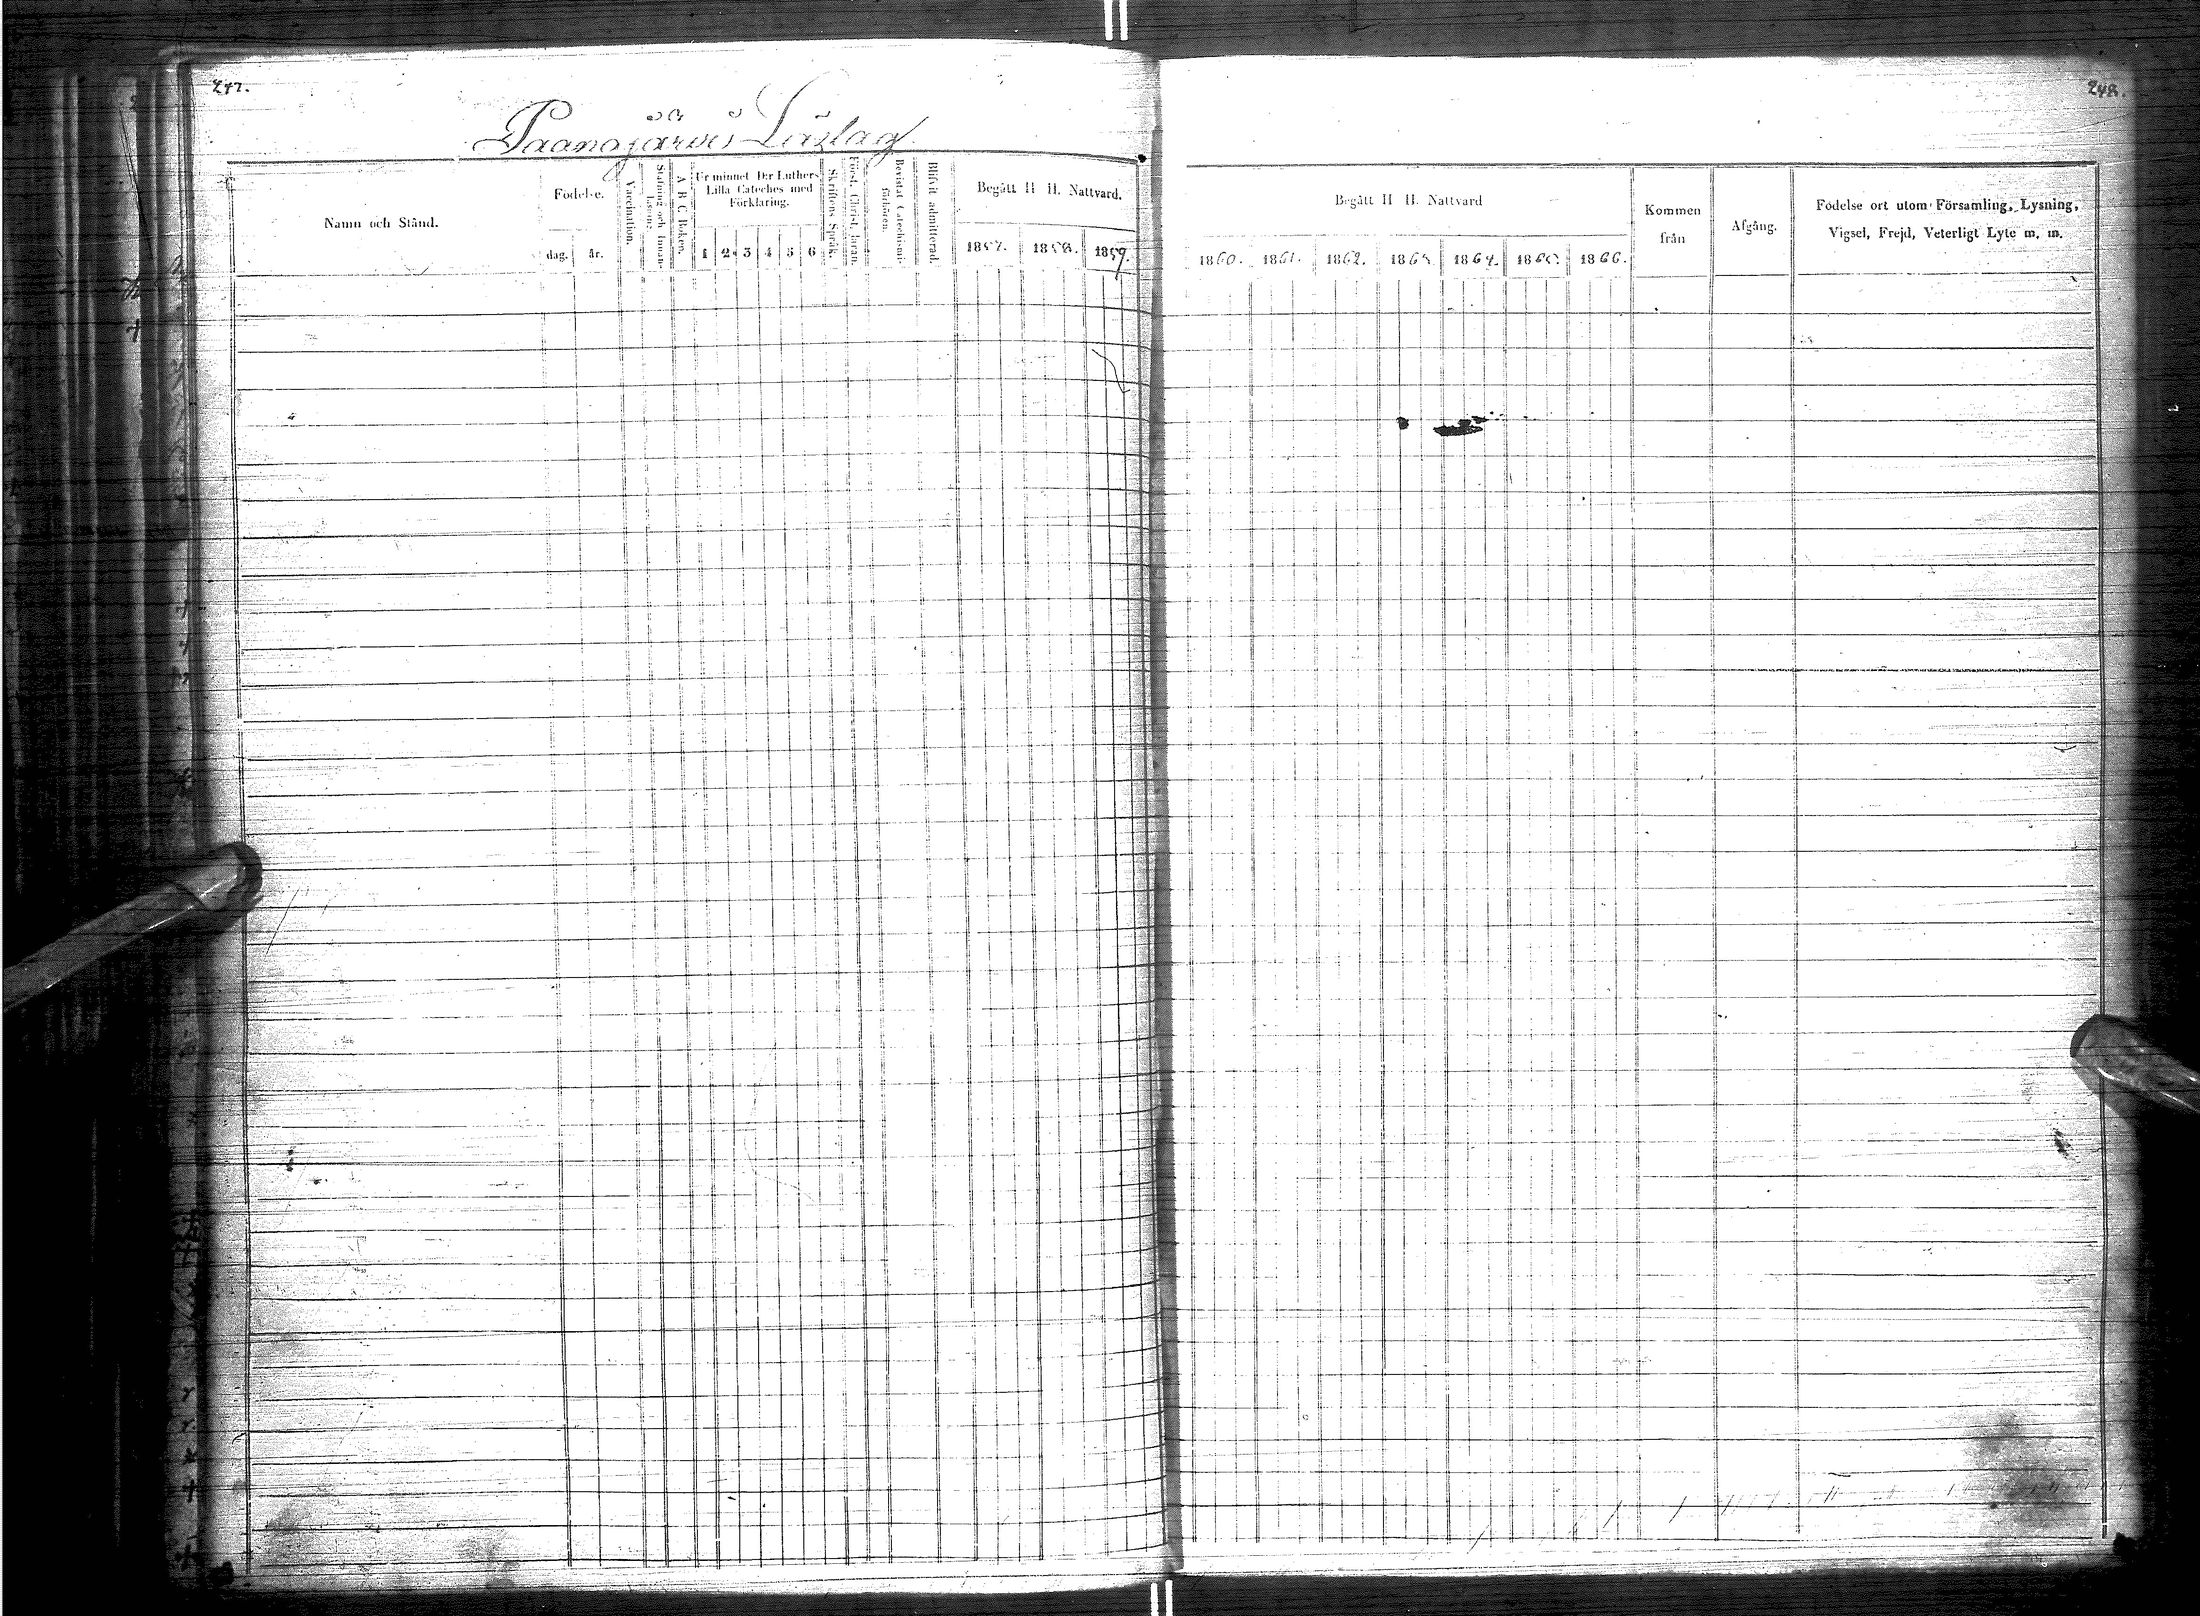 247.
248.
Paanajärvi Läslag
Namn och Stånd.
Födelse.
dag.
år.
Vaccination.
Stafning och Innan-
läsning
A B C Boken.
Ur minnet D:r Luthers
Lilla Cateches med
Förklaring.
1 2 3 4 5 6
Skriftens Språk.
Först. Christ. läran.
Bevistat Catechismi-
förhören.
Blifvit admitterad.
Begått H. H. Nattvard.
1857. 1858. 1859.
Begått H. H. Nattvard
1860. 1861. 1862. 1863. 1864. 1865. 1866.
Kommen
från
Afgång.
Födelse ort utom Församling, Lysning,
Vigsel, Frejd, Veterligt Lyte m. m.